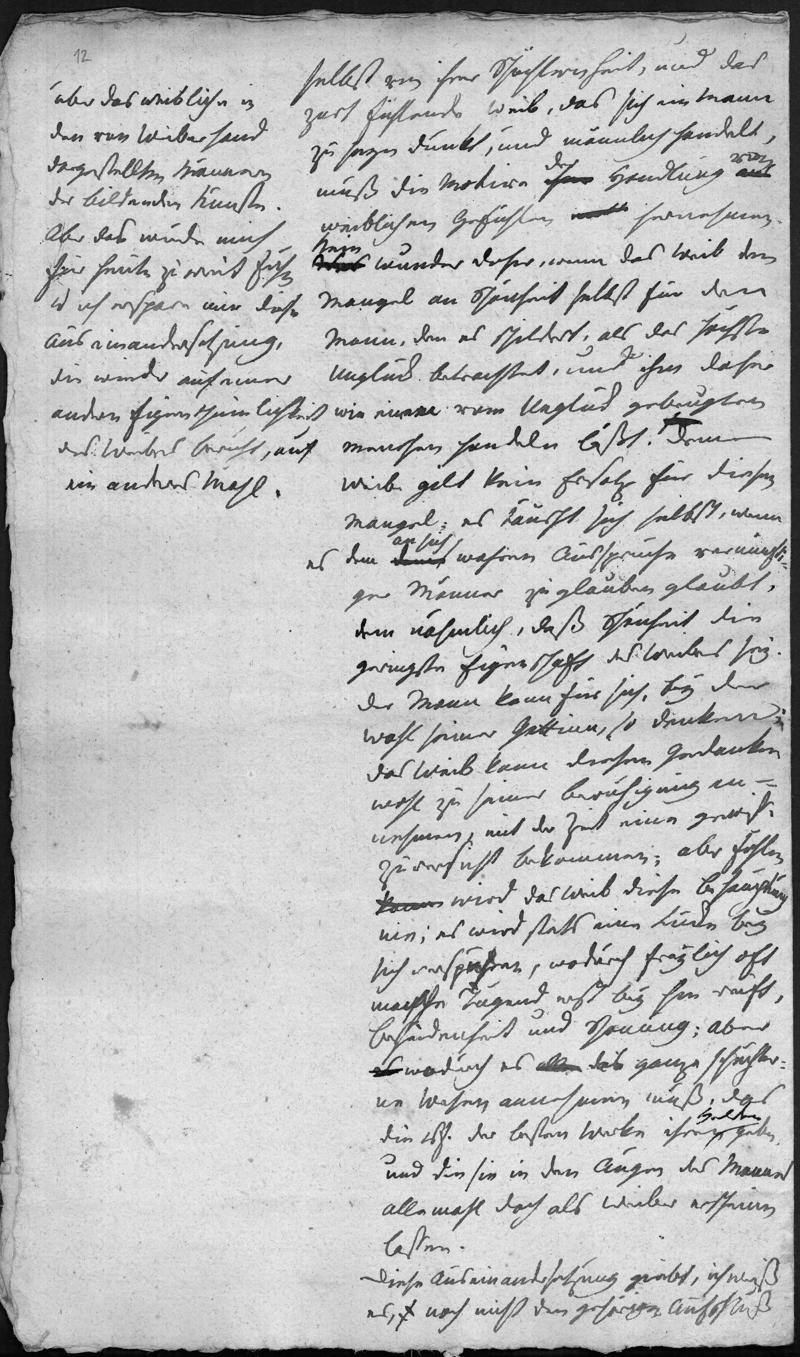 12
über das weibliche in
den von Weiberhand
dargestellten Männern
der bildenden Kunst.
Aber das würde mich
für heute zu weit führen
u ich erspare mir diese
Auseinandersetzung,
die wieder auf einer
andern Eigenthümlichkeit
des Weibes beruht, auf
ein anderes Mahl.
selbst von ihrer Schüchternheit, und das
zart fühlende Weib, das sich ein Mann
zu seyn dünkt, und männlich handelt,
muß die Motive der Handlung von
weiblichen Gefühlen hernehmen.
Kein Wunder daher, wenn das Weib den
Mangel an Schönheit selbst für den
Mann, den es schildert, als das höchste
Unglück betrachtet, und ihn daher
wie einen vom Unglück gebeugten
Menschen handeln läßt. Dem
Weibe gilt kein Ersatz für diesen
Mangel; es täuscht sich selbst, wenn
es dem an sich wahren Ausspruche vernünfti=
ger Männer zu glauben glaubt,
dem nähmlich, daß Schönheit die
geringste Eigenschaft des Weibes sey.
Der Mann kann für sich, bey der
Wahl seiner Gattinn, so denken;
das Weib kann diesen Gedanken
wohl zu seiner Beruhigung an=
nehmen, mit der Zeit eine gewisse
Zuversicht bekommen; aber fühlen
wird das Weib diese Behauptung
nie; es wird stets eine Lücke bey
sich verspühren, wodurch freylich oft
manche Tugend erst bey ihm reift,
Bescheidenheit und Schonung; aber
wodurch es das ganze schüchter=
ne Wesen annehmen muß, das
die der besten Werke ihren Helden geben
und die sie in den Augen des Mannes
allemahl doch als Weiber erscheinen
lassen.
Diese Auseinandersetzung giebt, ich weiß
es, noch nicht den gehörigen Aufschluß